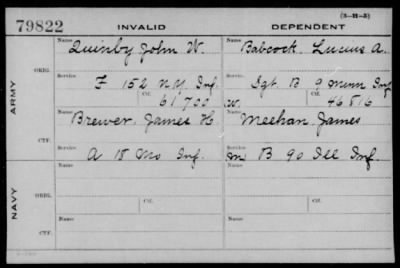 (3-11-3)
79822 INVALID DEPENDENT
Name Quinby John W. Name Babcock, Lucius A.
ARMY
ORIG. Service F 152 N.Y. Inf. Service Sgt. B 9 Minn Inf
Ctf. 61700 W. Ctf. 46816
Name Brewer, James H Name Meehan James
CTF. Service A 18 Mo Inf. Service M B 90 Ill Inf.
NAVY
Name Name
ORIG. Service Ctf. Service Ctf.
Name Name
CTF. Service Service